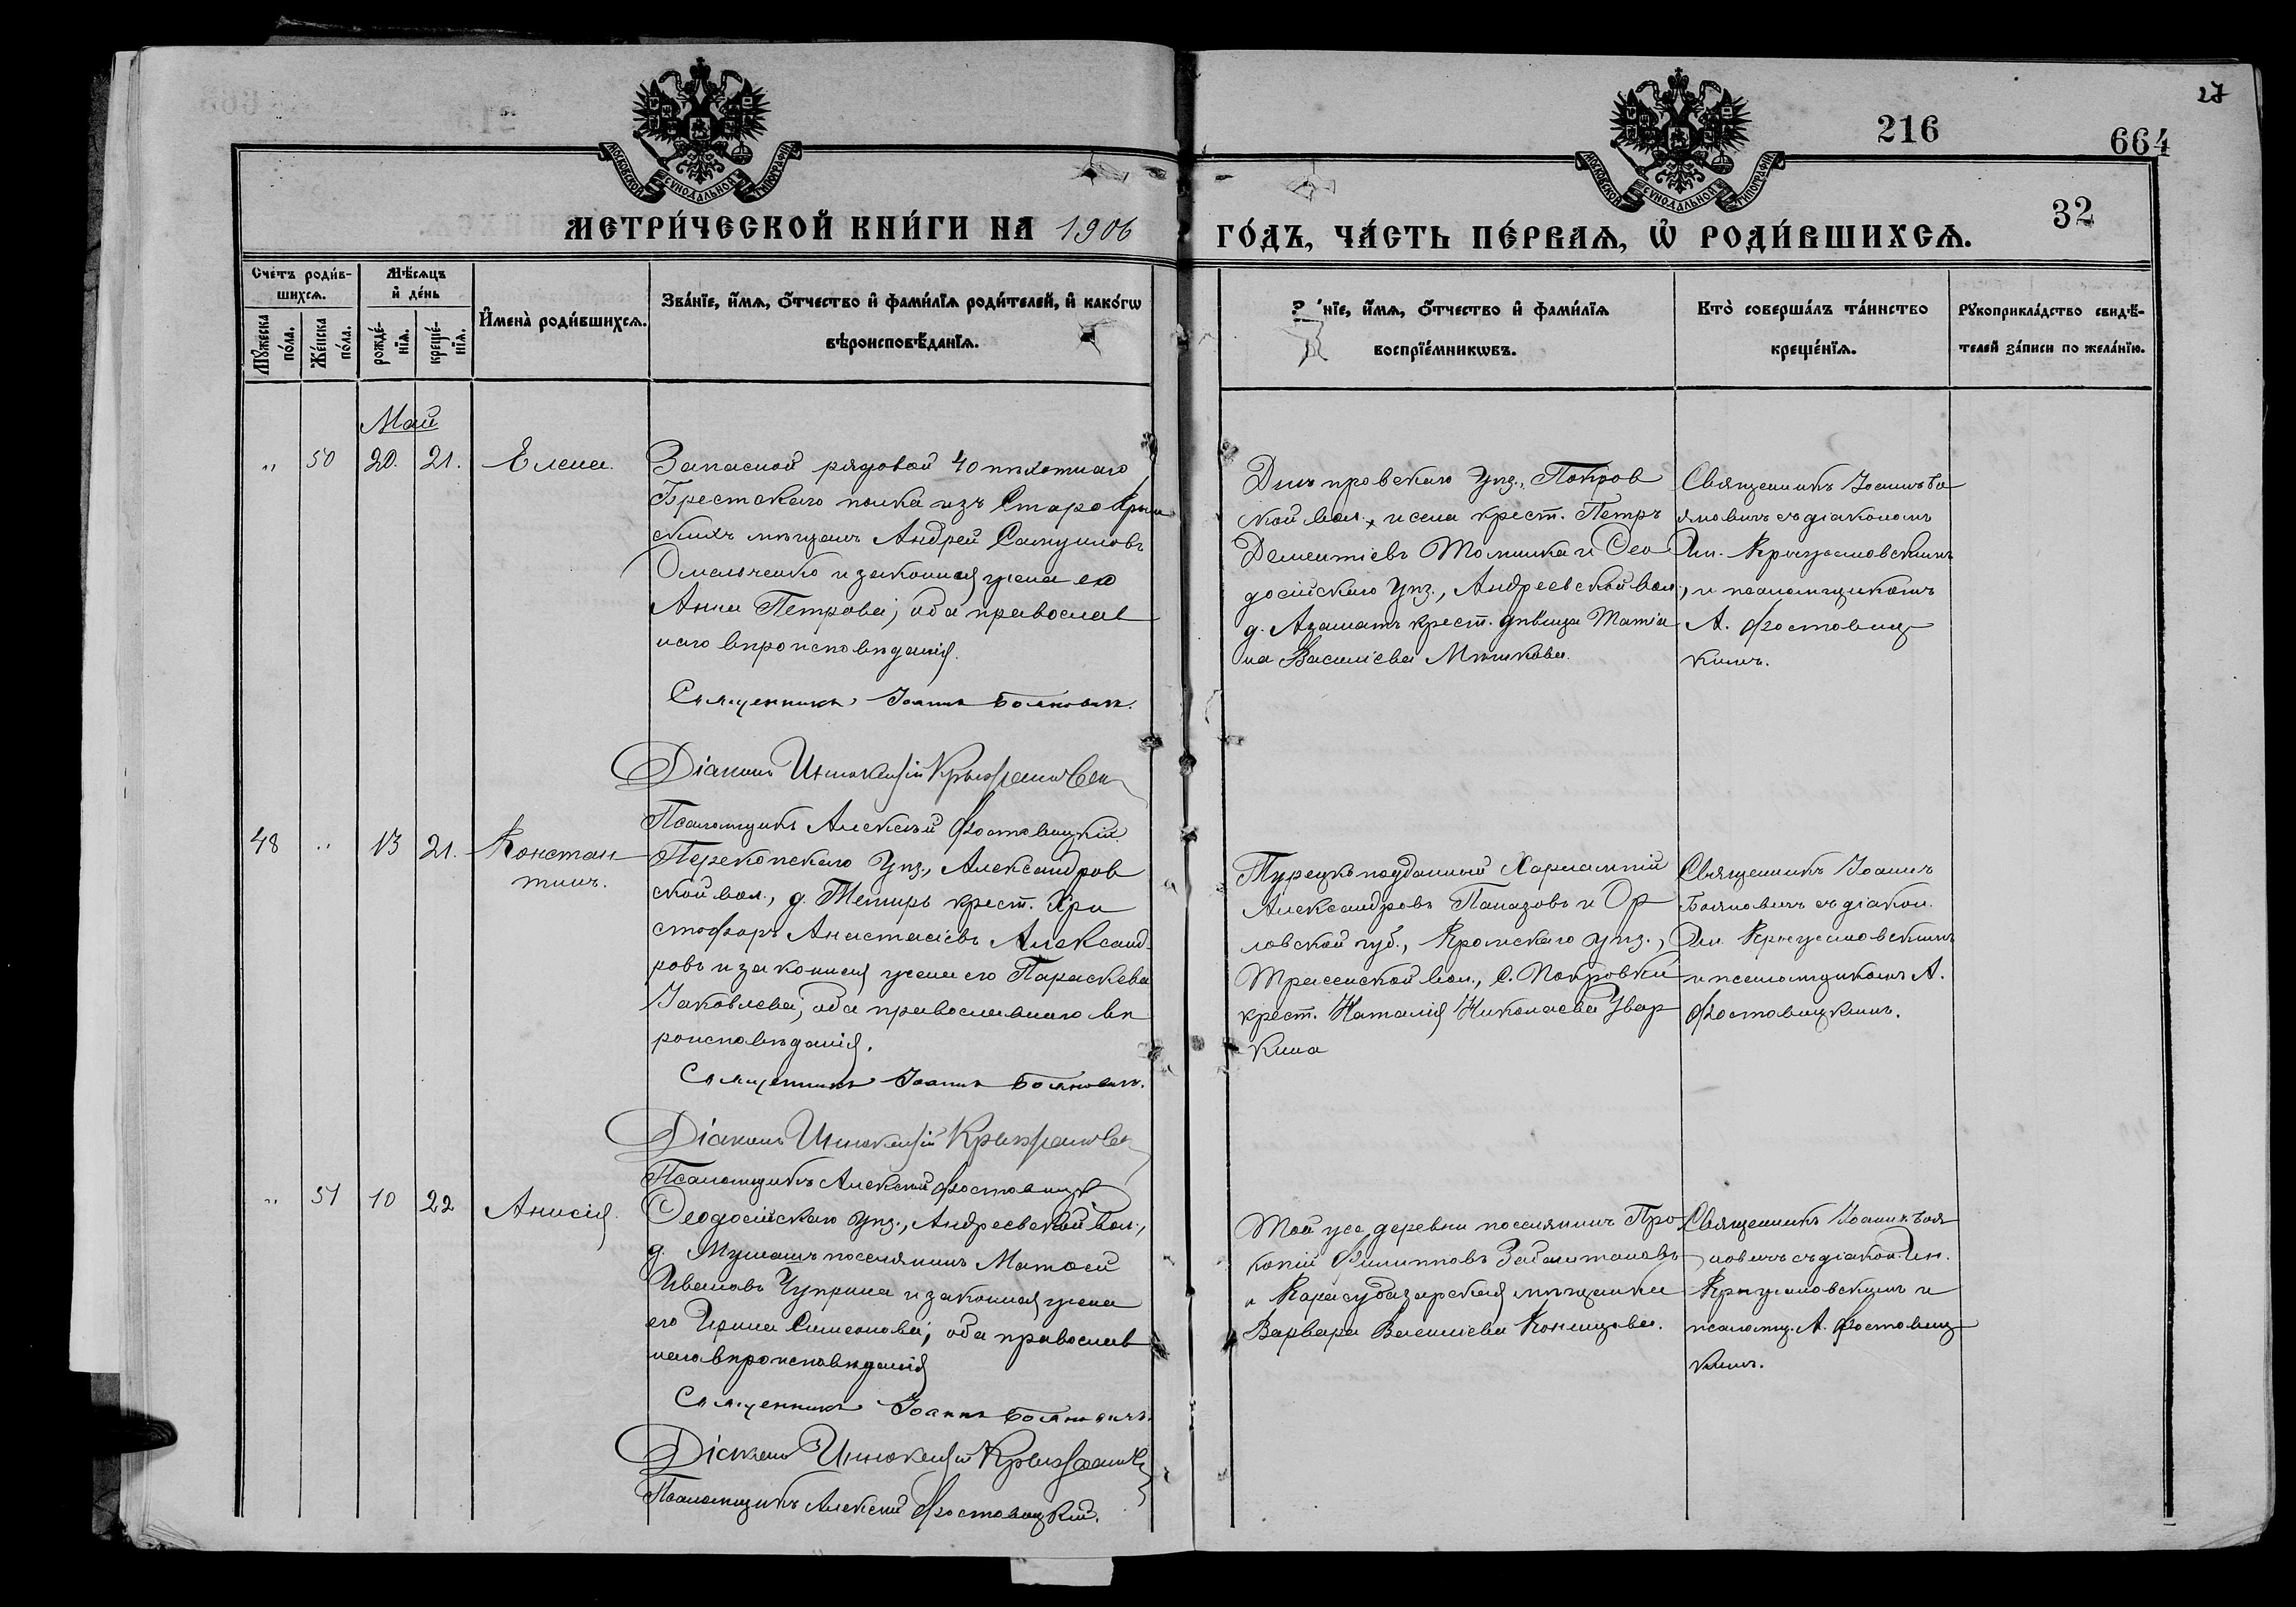 27
216
664
32
МОСКОВСКОЙ СѴНОДАЛЬНОЙ ТИПОГРАФІИ
МОСКОВСКОЙ СѴНОДАЛЬНОЙ ТИПОГРАФІИ
МЕТРИ́ЧЕСКОЙ КНИ́ГИ НА 1906
ГО́ДЪ, ЧА́СТЬ ПЕ́РВАѦ, Ѡ҆ РОДИ́ВШИХСѦ.
Сче́тъ роди́в-
шихсѧ.
Мꙋ́жеска
по́ла.
Же́нска
по́ла.
Мѣ́сѧцъ
и҆ де́нь
рожде́-
нїѧ.
креще́-
нїѧ.
И҆мена̀ роди́вшихсѧ.
Зва́нїе, и҆́мѧ, ѻ҆́тчество и҆ фами́лїѧ роди́телей, и҆ како́гѡ
вѣроисповѣ́данїѧ.
нїе, и҆́мѧ, ѻ҆́тчество и҆ фами́лїѧ
воспрїе́мникѡвъ.
Кто̀ соверша́лъ та́инство
креще́нїѧ.
Рꙋкоприкла́дство свидѣ́-
телей за́писи по жела́нїю.
Май
" 50 20. 21. Елена.
Запасной рядовой 40 пѣхотнаго
Брестскаго полка изъ Старо Крым
скихъ мѣщанъ Андрей Самуиловъ
Омельченко и законная жена его
Анна Петрова; оба православ
наго вѣроисповѣданія.
Священникъ Іоаннъ Бояновичъ.
Діаконъ Иннокентій
Псаломщикъ Алексѣй Фостовицкій.
Днѣпровскаго Уѣз., Покров
ской вол., и села крест. Петръ
Дементіевъ Томишка и Ѳео
досійскаго Уѣз., Андреевской вол.,
д. Азаматъ крест. дѣвица Татіа
на Василіева Мѣшкова.
Священникъ Іоаннъ Бо
яновичъ съ діакономъ
Ин. Крыжановскимъ
и псаломщикомъ
А. Фостовиц
кимъ.
48 " 13 21. Констан
тинъ.
Перекопскаго Уѣз., Александров
ской вол., д. Темиръ крест. Хри
стофоръ Анастасіевъ Александ-
ровъ и законная жена его Параскева
Іаковлева; оба православнаго вѣ
роисповѣданія.
Священникъ Іоаннъ Бояновичъ.
Діаконъ Иннокентій
Псаломщикъ Алексѣй Фостовицкій
Турецко подданный Харлампій
Александровъ Папазовъ и Ор
ловской губ., Кромскаго уѣз.,
вол., с. Покровки
крест. Наталія Николаева Увар
кина
Священникъ Іоаннъ
Бояновичъ съ діакон.
Ин. Крыжановскимъ
и псаломщикомъ А.
Фостовицкимъ.
" 51 10 22 Анисія.
Ѳеодосійскаго Уѣз., Андреевской вол.,
д. Мушашъ поселянинъ Матѳей
Ивановъ Чуприна и законная жена
его Ирина Симеонова; оба православ
наго вѣроисповѣданія
Священникъ Іоаннъ Бояновичъ.
Діаконъ Иннокентій
Псаломщикъ Алексѣй Фостовицкій.
Той же деревни поселянинъ Про
копій Филипповъ Забаштановъ
и Карасубазарская мѣщанка
Варвара Василіева Конищева.
Священникъ Іоаннъ Боя
новичъ съ діакон. Ин.
Крыжановскимъ и
псаломщ. А. Фостовиц
кимъ.